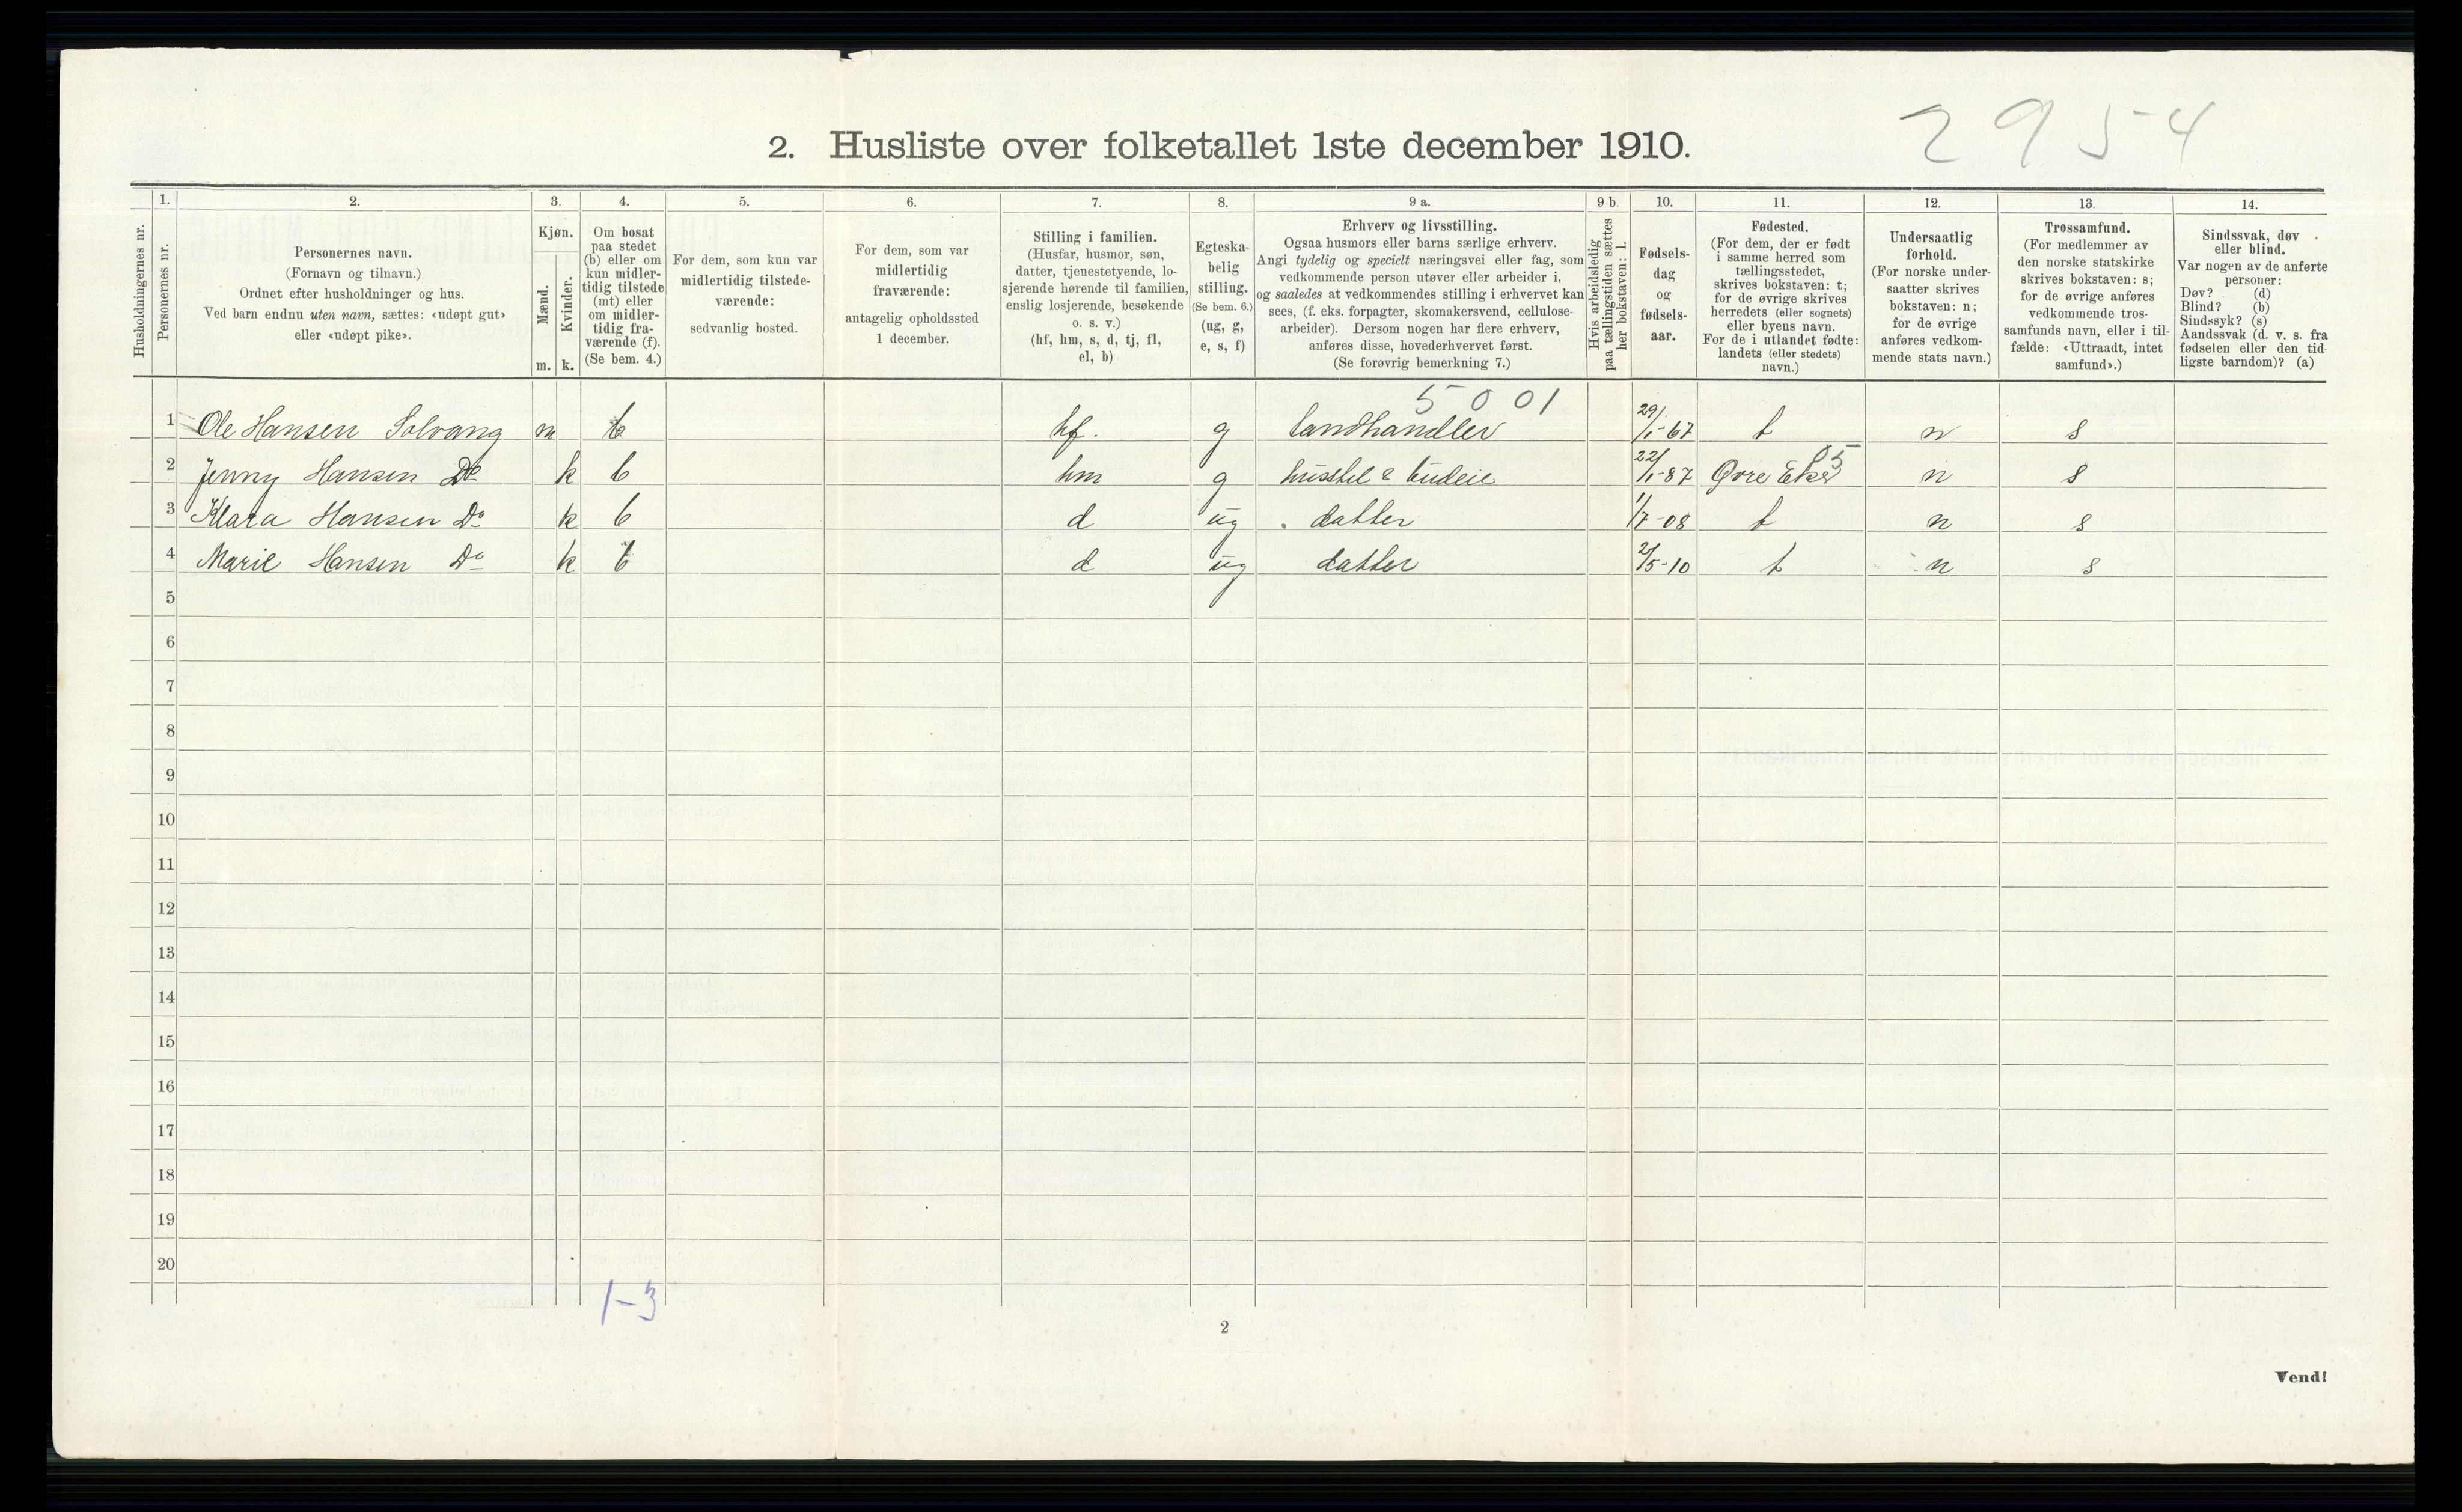 2954
2. Husliste over folketallet 1ste december 1910.
Husholdningernes nr.
1.
Personernes nr.
2.
Personernes navn.
(Fornavn og tilnavn.)
Ordnet efter husholdninger og hus.
Ved barn endnu uten navn, sættes: «udøpt gut»
eller «udøpt pike».
3.
Kjøn.
Mænd.
Kvinder.
m. k.
4.
Om bosat
paa stedet
(b) eller om
kun midler-
tidig tilstede
(mt) eller
om midler-
tidig fra-
værende (f).
(Se bem. 4.)
5.
For dem, som kun var
midlertidig tilstede-
værende:
sedvanlig bosted.
6.
For dem, som var
midlertidig
fraværende:
antagelig opholdssted
1 december.
7.
Stilling i familien.
(Husfar, husmor, søn,
datter, tjenestetyende, lo-
sjerende hørende til familien,
enslig losjerende, besøkende
o. s. v.)
(hf, hm, s, d, tj, fl,
el, b)
8.
Egteska-
belig
stilling.
(Se bem. 6.)
(ug, g,
e, s, f)
9 a.
Erhverv og livsstilling.
Ogsaa husmors eller barns særlige erhverv.
Angi tydelig og specielt næringsvei eller fag, som
vedkommende person utøver eller arbeider i,
og saaledes at vedkommendes stilling i erhvervet kan
sees, (f. eks. forpagter, skomakersvend, cellulose-
arbeider). Dersom nogen har flere erhverv,
anføres disse, hovederhvervet først.
(Se forøvrig bemerkning 7.)
9 b.
Hvis arbeidsledig
paa tællingstiden sættes
her bokstaven: l.
10.
Fødsels-
dag
og
fødsels-
aar.
11.
Fødested.
(For dem, der er født
i samme herred som
tællingsstedet,
skrives bokstaven: t;
for de øvrige skrives
herredets (eller sognets)
eller byens navn.
For de i utlandet fødte:
landets (eller stedets)
navn.)
12.
Undersaatlig
forhold.
(For norske under-
saatter skrives
bokstaven: n;
for de øvrige
anføres vedkom-
mende stats navn.)
13.
Trossamfund.
(For medlemmer av
den norske statskirke
skrives bokstaven: s;
for de øvrige anføres
vedkommende tros-
samfunds navn, eller i til-
fælde: «Uttraadt, intet
samfund».)
14.
Sindssvak, døv
eller blind.
Var nogen av de anførte
personer:
Døv? (d)
Blind? (b)
Sindssyk? (s)
Aandssvak (d. v. s. fra
fødselen eller den tid-
ligste barndom)? (a)
5001
1 Ole Hansen Solvang m b hf. g landhandler 29/1-67 t n s
05
2 Jenny Hansen Do k b hm g husstel & budeie 22/1-87 Øvre Eker n s
3 Klara Hansen Do k b d ug datter 1/7-08 t n s
4 Marie Hansen Do k b d ug datter 2/5-10 t n s
5
6
7
8
9
10
11
12
13
14
15
16
17
18
19
20
1-3
2
Vend!